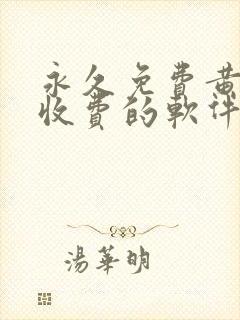 永久免費黄
收費的軟件
湯華明